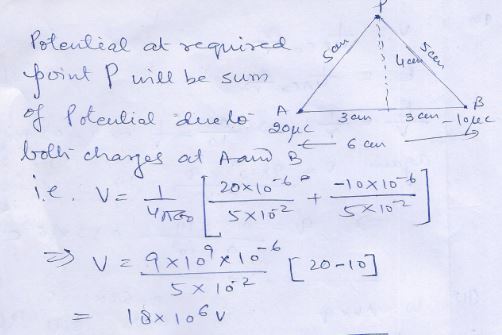 P
Potential at required
point P will be sum
of Potential due to
both charges at A and B
5cm
4cm
5cm
A
B
20μc
3cm
3cm
-10μc
← 6 cm →
i.e. V = 1/4πε0 [ 20×10^-6 / 5×10^-2 + -10×10^-6 / 5×10^-2 ]
⇒ V = 9×10^9×10^-6 / 5×10^-2 [20-10]
= 18×10^6 V